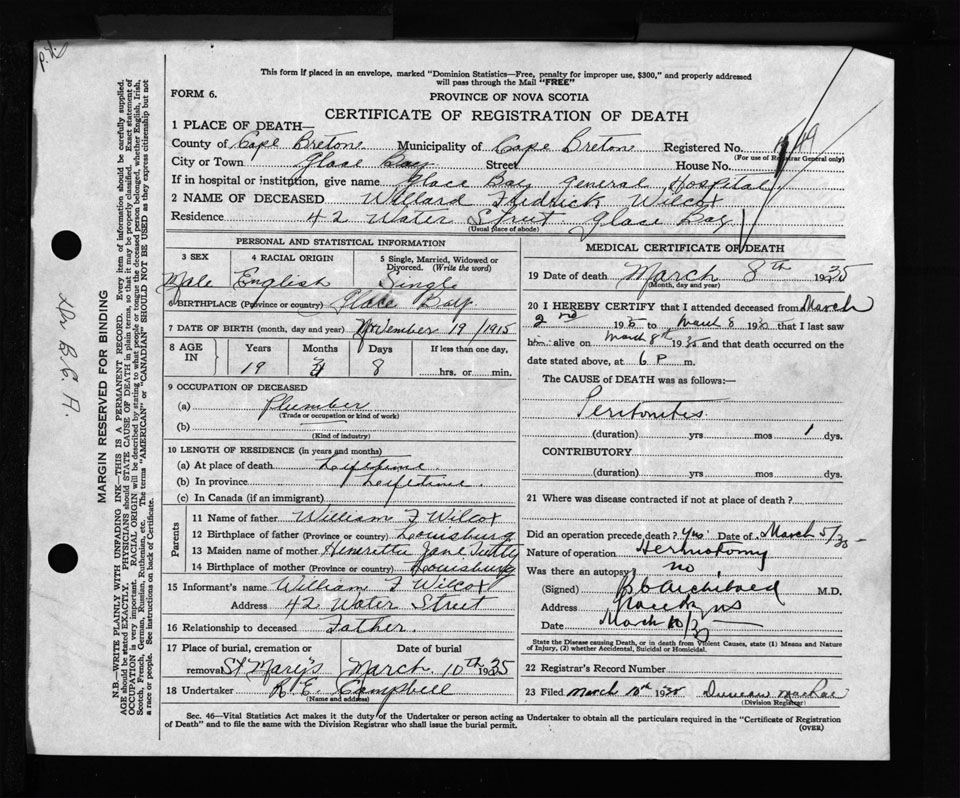 P.N.
This form if placed in an envelope, marked "Dominion Statistics—Free, penalty for improper use, $300," and properly addressed
will pass through the Mail "FREE"
FORM 6.
PROVINCE OF NOVA SCOTIA
CERTIFICATE OF REGISTRATION OF DEATH
1 PLACE OF DEATH—
County of Cape Breton Municipality of Cape Breton Registered No.
(For use of Registrar General only)
City or Town Glace Bay Street House No.
If in hospital or institution, give name Glace Bay General Hospital
2 NAME OF DECEASED Willard Fredrick Wilcox
Residence 42 Water Street Glace Bay
(Usual place of abode)
PERSONAL AND STATISTICAL INFORMATION
3 SEX 4 RACIAL ORIGIN 5 Single, Married, Widowed or
Divorced. (Write the word)
Male English Single
6 BIRTHPLACE (Province or country) Glace Bay.
7 DATE OF BIRTH (month, day and year) November 19/1915
8 AGE IN Years Months Days If less than one day,
19 3 8 hrs. or min.
9 OCCUPATION OF DECEASED
(a) Plumber
(Trade or occupation or kind of work)
(b)
(Kind of industry)
10 LENGTH OF RESIDENCE (in years and months)
(a) At place of death Lifetime.
(b) In province Lifetime.
(c) In Canada (if an immigrant)
Parents
11 Name of father William F Wilcox
12 Birthplace of father (Province or country) Louisburg
13 Maiden name of mother Henrietta Jane
14 Birthplace of mother (Province or country) Louisburg
15 Informant's name William F Wilcox
Address 42 Water Street
16 Relationship to deceased Father.
17 Place of burial, cremation or Date of burial
removal St Mary's March 10th 1935
18 Undertaker R E Campbell
(Name and address)
MEDICAL CERTIFICATE OF DEATH
19 Date of death March 8th 1935
(Month, day and year)
20 I HEREBY CERTIFY that I attended deceased from March
2nd 1935 to March 8 1935 that I last saw
him alive on March 8th 1935 and that death occurred on the
date stated above, at 6 P m.
The CAUSE of DEATH was as follows:—
Peritonitis
(duration) yrs mos 1 dys.
CONTRIBUTORY
(duration) yrs mos dys.
21 Where was disease contracted if not at place of death?
Did an operation precede death? Yes. Date of March 5/35
Nature of operation Herniotomy
Was there an autopsy? no
(Signed) B C Archibald M.D.
Address
Date March 10/35
State the Disease causing Death, or in death from Violent Causes, state (1) Means and Nature
of Injury, (2) whether Accidental, Suicidal or Homicidal.
22 Registrar's Record Number
23 Filed March 10th 1935 Duncan MacRae
(Division Registrar)
Sec. 46—Vital Statistics Act makes it the duty of the Undertaker or person acting as Undertaker to obtain all the particulars required in the "Certificate of Registration
of Death" and to file the same with the Division Registrar who shall issue the burial permit.
(OVER)
Dr B.C. A.
MARGIN RESERVED FOR BINDING
N.B.—WRITE PLAINLY WITH UNFADING INK—THIS IS A PERMANENT RECORD. Every item of information should be carefully supplied.
AGE should be stated EXACTLY. PHYSICIANS should STATE CAUSE OF DEATH in plain terms, so that it may be properly classified. Exact statement of
OCCUPATION is very important. RACIAL ORIGIN will be described by stating to what people or tongue the deceased person belonged, whether English, Irish,
Scotch, French, German, Russian, Ruthenian, etc. The terms "AMERICAN" or "CANADIAN" SHOULD NOT BE USED as they express citizenship but not
a race or people. See instructions on back of Certificate.